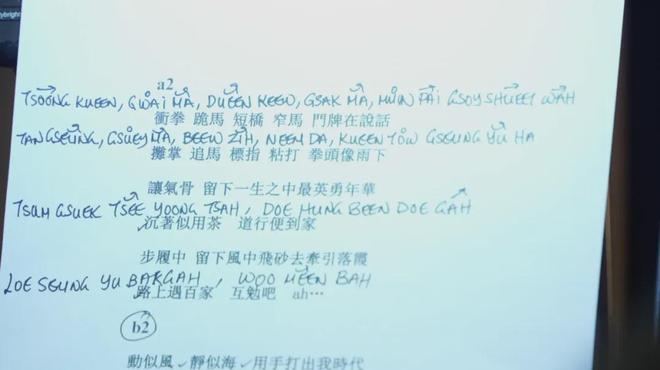 a2
TSOONG KUEEN, GWAI MA, DUEEN KEEW, GSAK MA, MUN PAI GSOY SHUEET WAH
衝拳 跪馬 短橋 窄馬 門牌在說話
TAN GSEUNG, GSUEY MA, BEEW ZIH, NEEM DA, KUEEN TOW GSEUNG YU HA
攤掌 追馬 標指 粘打 拳頭像雨下
讓氣骨 留下一生之中最英勇年華
TSUM GSUEK TSEE YOONG TSAH, DOE HUNG BEEN DOE GAH
沉著似用茶 道行便到家
步履中 留下風中飛砂去牽引落霞
LOE SEUNG YU BAK GAH, WOO MEEN BAH
路上遇百家 互勉吧 ah…
b2
動似風✓靜似海✓用手打出我時代